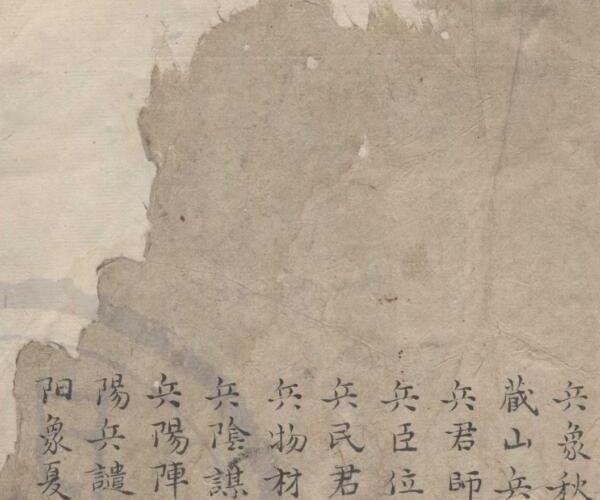 兵象秋
蔵山兵
兵君師
兵臣位
兵民君
兵物材
兵陰謀
兵陽陣
陽兵譴
阳象夏